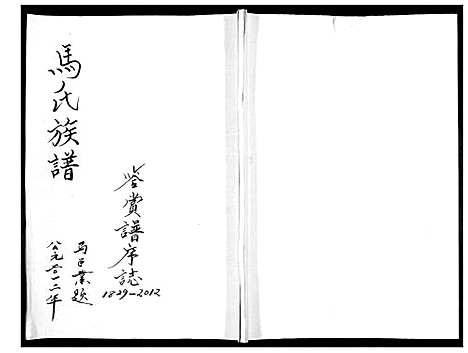 馬氏族譜
鉴賞譜序誌
1829-2012
马業题
公元二〇一二年